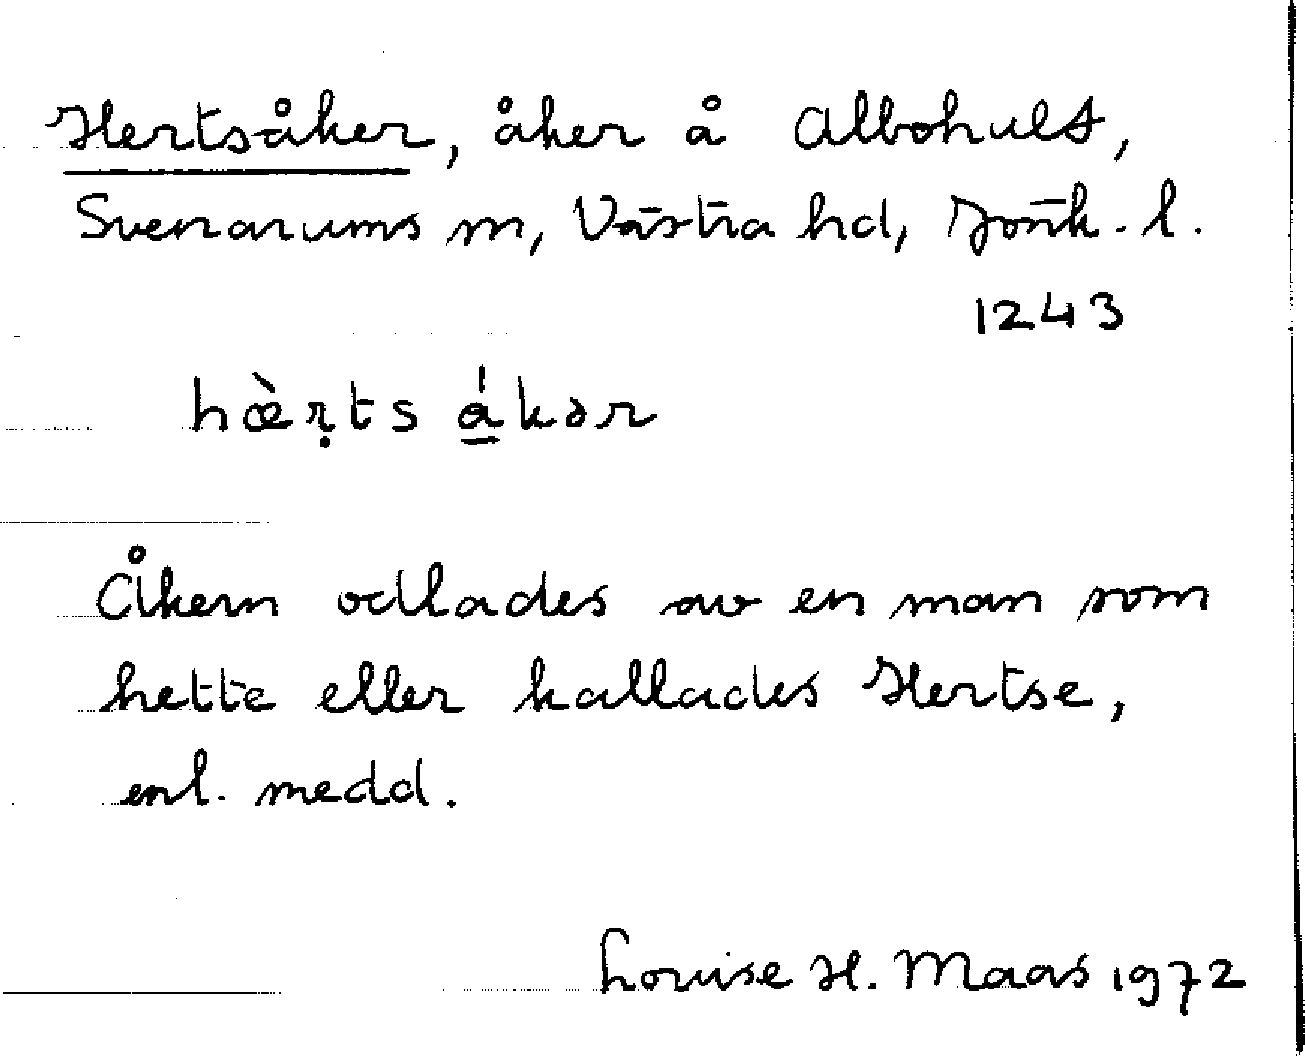 Hertsåker, åker å Albohult,
Svenarums sn, Västra hd, Jönk. l.
1243
hæ̀ṛts ǻ̲kər
Åkern odlades av en man som
hette eller kallades Hertse,
enl. medd.
Louise H. Maas 1972